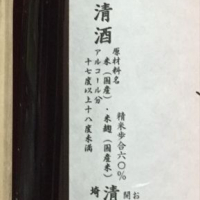 清酒
精米歩合六〇%
原材料名
米(国産)・米麹(国産米)
アルコール分
十七度以上十八度未満
お
清
埼